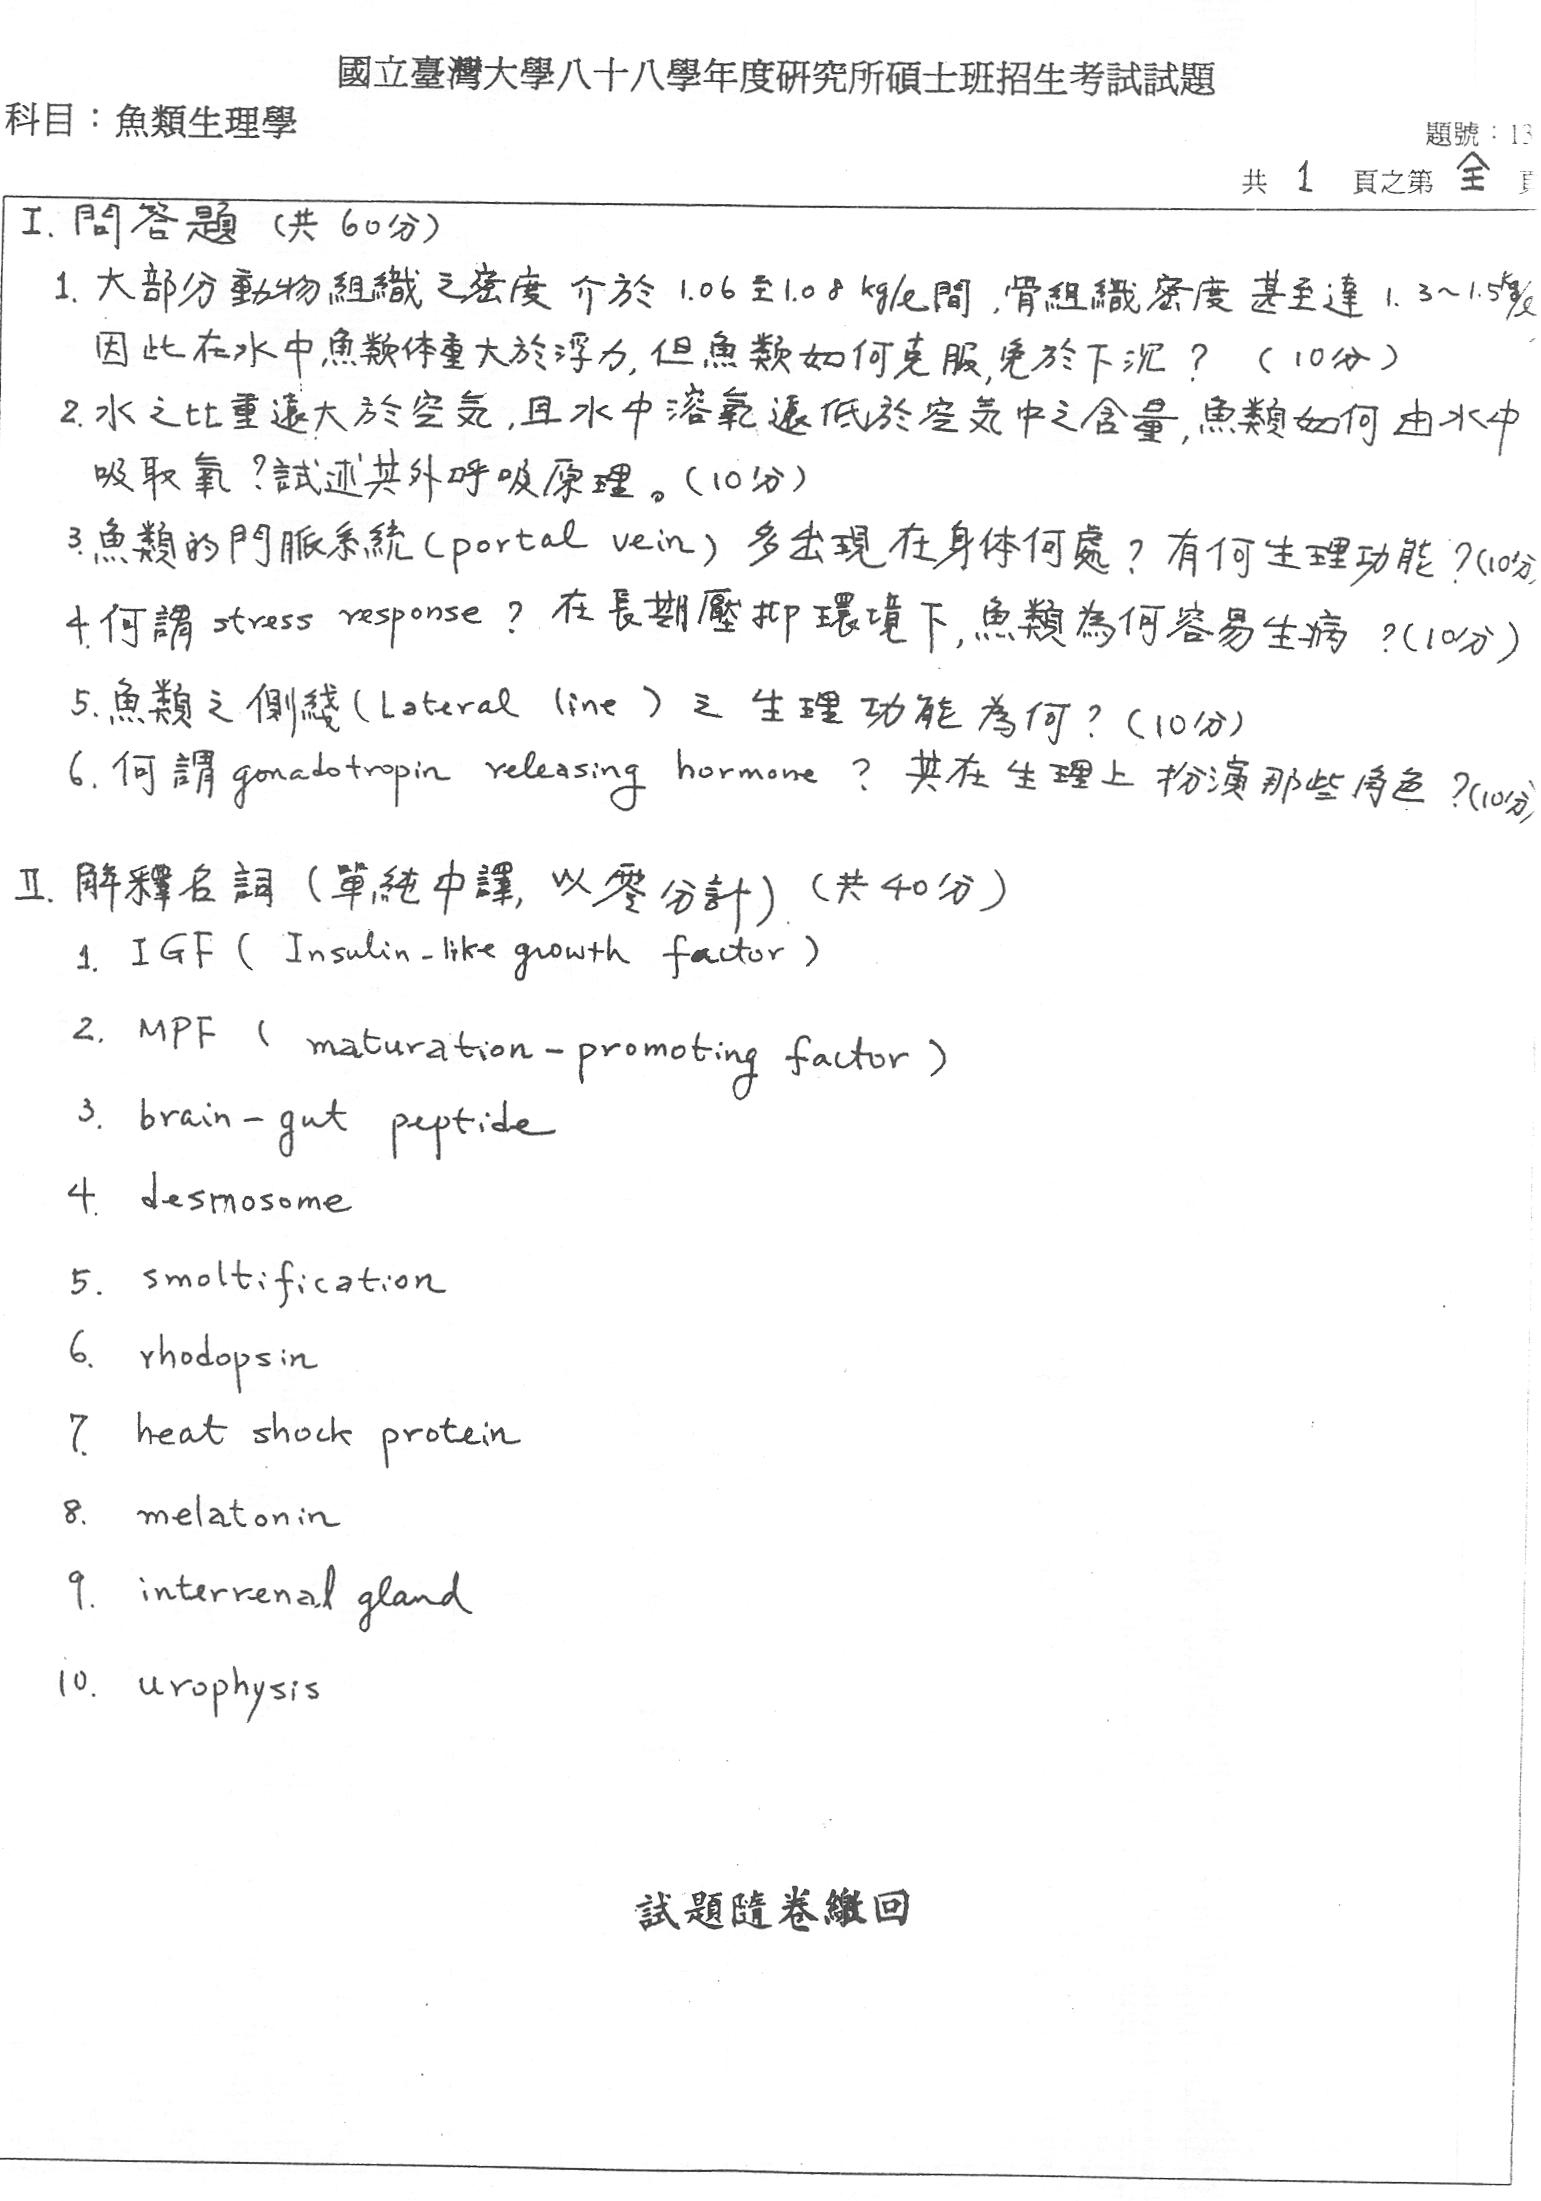 國立臺灣大學八十八學年度研究所碩士班招生考試試題
科目：魚類生理學
題號：13
共 1 頁之第 全 頁
I. 問答題 (共 60分)
1. 大部分動物組織之密度介於 1.06至1.08 kg/l間,骨組織密度甚至達 1.3~1.5kg/l
因此在水中魚類体重大於浮力,但魚類如何克服,免於下沉? (10分)
2. 水之比重遠大於空気,且水中溶氧遠低於空気中之含量,魚類如何由水中
吸取氧?試述其外呼吸原理。(10分)
3. 魚類的門脈系統(portal vein) 多出現在身体何處? 有何生理功能?(10分)
4. 何謂 stress response? 在長期壓抑環境下,魚類為何容易生病?(10分)
5. 魚類之側綫(Lateral line) 之生理功能為何? (10分)
6. 何謂 gonadotropin releasing hormone? 其在生理上扮演那些角色?(10分)
II. 解釋名詞 (單純中譯, 以零分計) (共40分)
1. IGF (Insulin-like growth factor)
2. MPF (maturation-promoting factor)
3. brain-gut peptide
4. desmosome
5. smoltification
6. rhodopsin
7. heat shock protein
8. melatonin
9. interrenal gland
10. urophysis
試題隨卷繳回